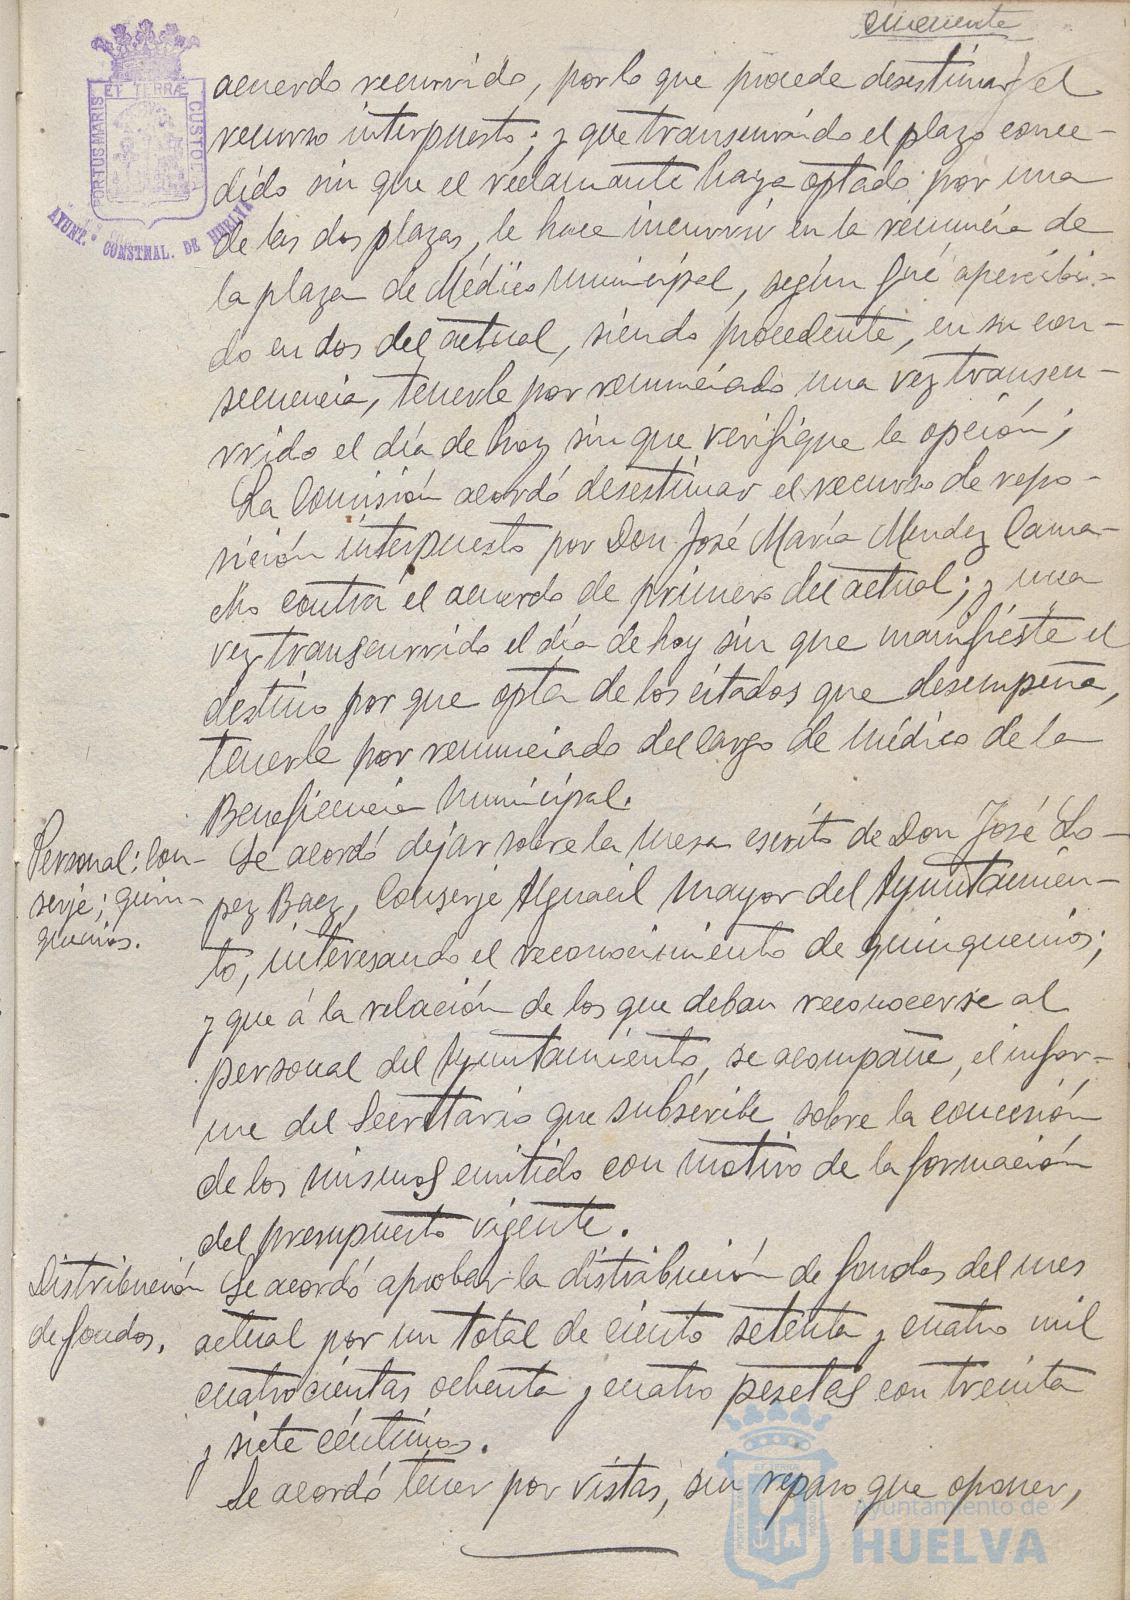 cincuenta
acuerdo recurrido, por lo que procede desestimar el
recurso interpuesto; y que transcurrido el plazo conce-
dido sin que el reclamante haya optado por una
de las dos plazas, le hace incurrir en la renuncia de
la plaza de Médico Municipal, según fué apercibi-
do en dos del actual, siendo procedente, en su con-
secuencia, tenerle por renunciado una vez transcu-
rrido el día de hoy sin que verifique la opción;
La Comisión acordó desestimar el recurso de repo-
sición interpuesto por Don José María Mendez Cama-
cho contra el acuerdo de primero del actual; y una
vez transcurrido el día de hoy sin que manifieste el
destino por que opta de los citados que desempeña,
tenerle por renunciado del cargo de médico de la
Beneficencia Municipal.
Personal: Con-
serje; quin-
quenios.
Se acordó dejar sobre la mesa escrito de Don José Lo-
pez Baez, Conserje Alguacil Mayor del Ayuntamien-
to, interesando el reconocimiento de quinquenios;
y que á la relación de los que deban reconocerse al
personal del Ayuntamiento, se acompañe, el infor-
me del Secretario que subscribe sobre la concesión
de los mismos emitido con motivo de la formación
del presupuesto vigente.
Distribución
de fondos.
Se acordó aprobar la distribución de fondos del mes
actual por un total de ciento setenta y cuatro mil
cuatrocientas ochenta y cuatro pesetas con treinta
y siete céntimos.
Se acordó tener por vistas, sin reparo que oponer,
PORTUS MARIS ET TERRÆ CUSTODIA
AYUNT. CONSTNAL. DE HUELVA
Ayuntamiento de
HUELVA